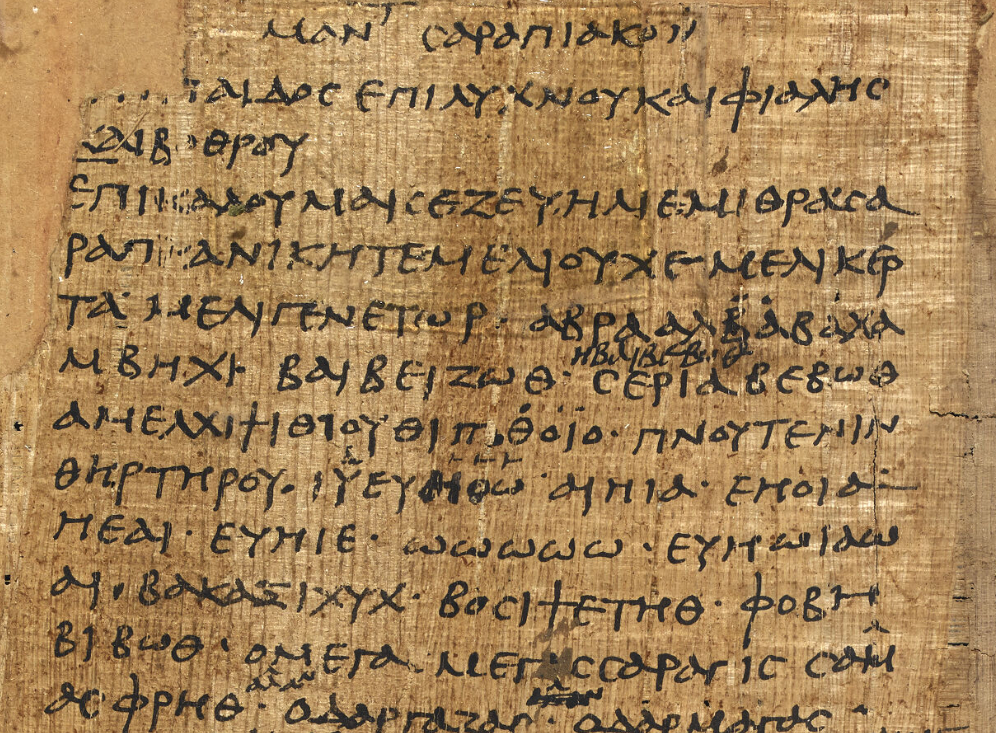 μαν σαραπιακον
ταιδος επι λυχνου και φιαλης
και βαθρου
επικαλουμαι σε ζευ ηλιε μιθρα σα
ραπι ανικητε μελιουχε μελικερ
τα μελιγενετωρ · αβρααλ βαβαχα
μβηχι · βαιβειζωθ · σεριαβεβωθ
αμελχιψιθιουθιποθοιο · πνουτε νιν
θηρτηρου · ιυευηοω · αιηια · εηοια
ηεαι · ευηιε · ωωωωω · ευηωιαω
αι · βακαξιχυχ · βοσιψετηθ · φοβη
βιβωθ · ομεγα μεγισ σαραπις σαμ
ας φρηθ ·